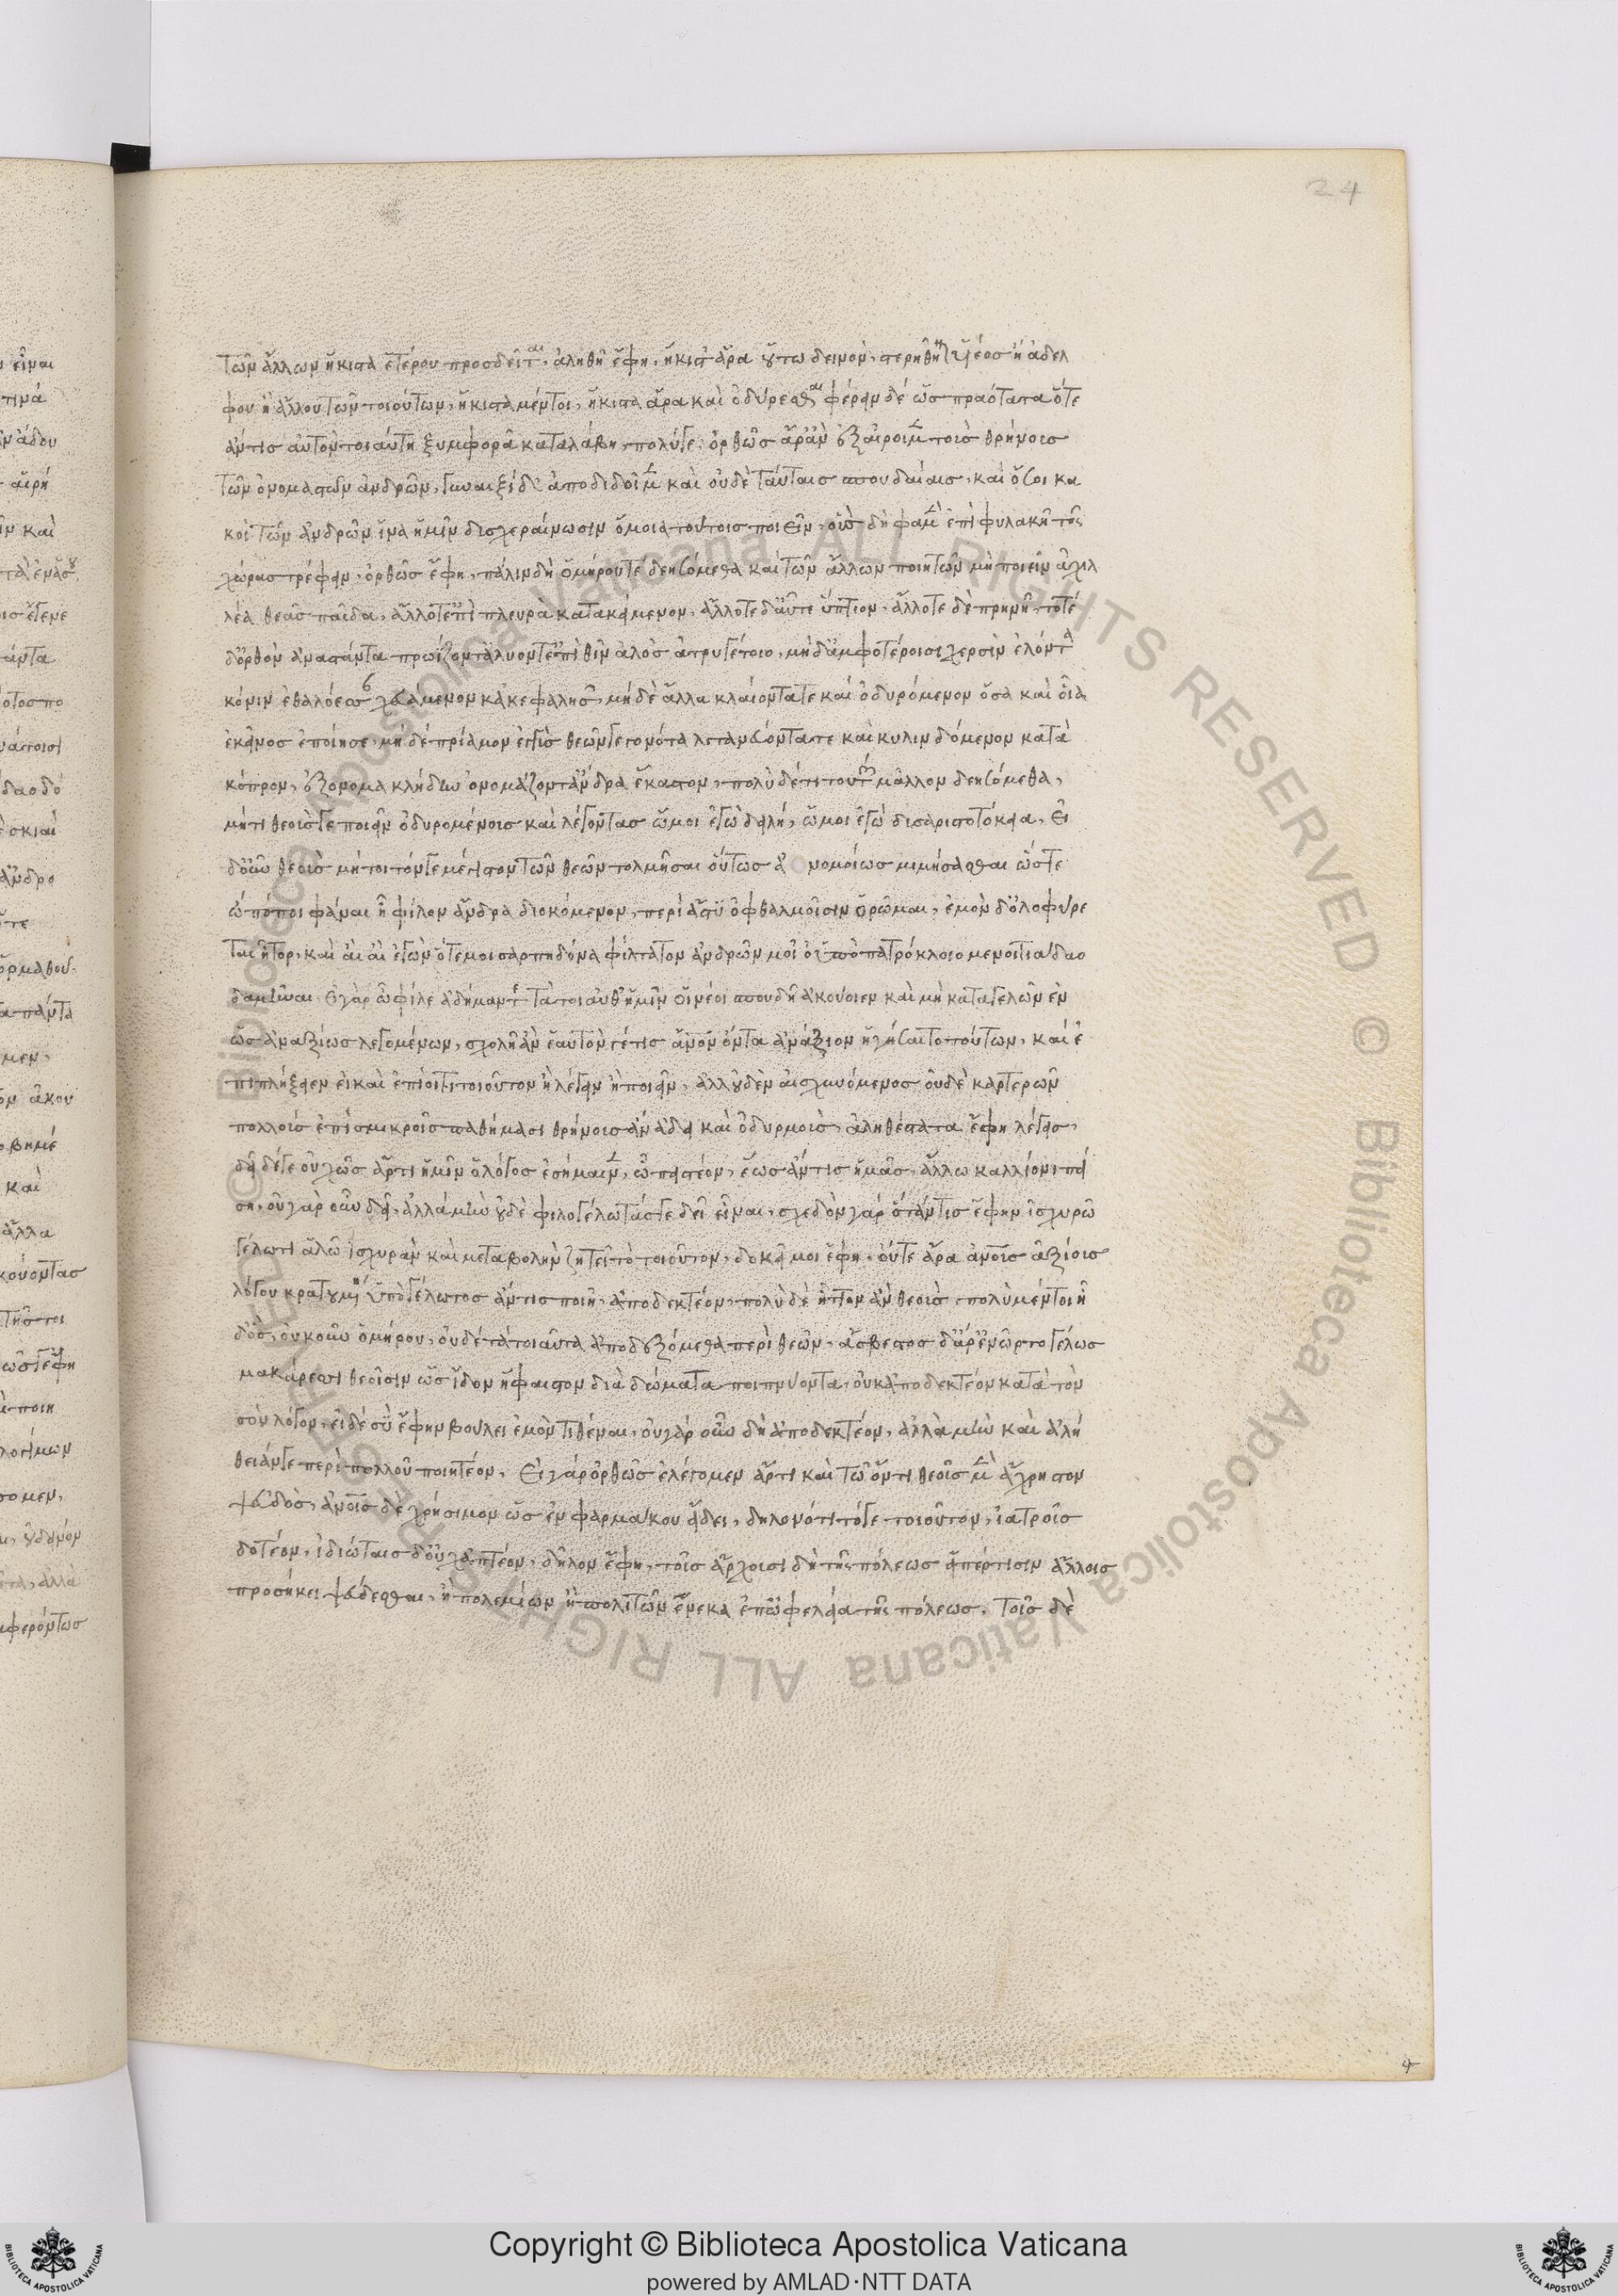 24
τῶν ἄλλων ἥκιστα ἑτέρου προσδεῖται. ἀληθῆ ἔφη. ἥκιστ' ἄρα οὕτω δεινὸν, στερηθῆναι υἱέος ἢ ἀδελ
φοῦ ἢ ἄλλου τῶν τοιούτων, ἥκιστα μέντοι, ἥκιστα ἄρα καὶ ὀδύρεσθαι φέρειν δέ ὡς πραότατα ὅτε
ἄν τις αὐτὸν τοιαύτη ξυμφορᾶ καταλάβη, πολύ γε. ὀρθῶς ἄρ' ἂν ἐξαιροῖμεν τοὺς θρήνοις
τῶν ὀνομαστῶν ἀνδρῶν, γυναιξὶ δὲ ἀποδιδοῖμεν καὶ οὐδὲ ταύταις σπουδαίαις, καὶ ὅσοι κα
κοὶ τῶν ἀνδρῶν ἵνα ἡμῖν δισχεραίνωσιν ὅμοια τούτοις ποιεῖν, οὓς δή φαμὲν ἐπὶ φυλακῆ τῆς
χώρας τρέφειν. ὀρθῶς ἔφη, πάλιν δὴ ὁμήρου τέ δεησόμεθα καὶ τῶν ἄλλων ποιητῶν μὴ ποιεῖν ἀχιλ
λέα θεᾶς παῖδα, ἄλλοτ' ἐπὶ πλευρὰ κατακείμενον, ἄλλοτε δ' αὖτε ὕπτιον, ἄλλοτε δὲ πρηνῆ, τοτέ
δ' ὀρθὸν ἀναστάντα πρωΐζοντ' ἀλύοντ' ἐπὶ θῖν' ἁλὸς ἀτρυγέτοιο, μὴ δ' ἀμφοτέροισι χερσὶν ἑλόντα
κόνιν
ἐκεῖνος ἐποίησε, μή δέ πρίαμον ἐγγὺς θεῶν γεγονότα λιτανεύοντά τε καὶ κυλινδόμενον κατὰ
κόπρον, ἐξονομακλήδην ὀνομάζοντ' ἄνδρα ἕκαστον, πολὺ δ' ἔτι τούτων μᾶλλον δεησόμεθα,
μήτι θεούς γε ποιεῖν ὀδυρομένοις καὶ λέγοντας ὤμοι ἐγὼ δειλή, ὤμοι ἐγὼ δισαριστοτόκεια, εἰ
δ' οὖν θεοὺς μήτοι τόν γε μέγιστον τῶν θεῶν τολμῆσαι οὕτως ἀνομοίως μιμήσασθαι ὥστε
ὢ πόποι φάναι ἦ φίλον ἄνδρα διοκόμενον, περὶ ἄστυ ὀφθαλμοῖσιν ὁρῶμαι, ἐμὸν δ' ὀλοφύρε
ται ἦτορ, καὶ αἲ αἲ ἐγὼν ὅτε μοι σαρπηδόνα φίλτατον ἀνδρῶν μοῖ ὑπὸ πατρόκλοιο μενοιτιάδαο
δαμῆναι. εἰ γὰρ ὦ φίλε ἀδήμαντε τὰ τοιαῦθ' ἡμῖν οἱ νέοι σπουδῆ ἀκούοιεν καὶ μὴ καταγελῶεν
ὡς ἀναξίως λεγομένων, σχολῆ ἂν ἑαυτὸν γέ τις ἄνον ὄντα ἀνάξιον ἡγήσαιτο τούτων, καὶ ἐ
πιπλήξειεν εἰ καὶ ἐπίοι τι τοιοῦτον ἢ λέγειν ἢ ποιεῖν, ἀλλ' οὐδὲν αἰσχυνόμενος οὐδὲ καρτερῶν
πολλοὺς ἐπὶ σμικροῖς παθήμασι θρήνους ἂν ἄδει καὶ ὀδυρμοὺς, ἀληθέστατα ἔφη λέγεις,
δεῖ δέ γε οὐχ ὡς ἄρτι ἡμῖν ὁ λόγος ἐσήμαινεν, ὧ πειστέον, ἕως ἄν τις ἡμᾶς, ἄλλω καλλίονι πεί
ση, οὐ γὰρ οὖν δεῖ, ἀλλὰ μὴν οὐδὲ φιλογέλωτάς γε δεῖ εἶναι, σχεδὸν γὰρ ὅταν τις ἔφην ἰσχυρῶ
γέλωτι ἁλῶ ἰσχυρὰν καὶ μεταβολὴν ζητεῖ τὸ τοιοῦτον, δοκεῖ μοι ἔφη, οὔτε ἄρα ἀνοῖς ἀξίοις
λόγου κρατουμένους ὑπὸ γέλωτος ἄν τις ποιῆ, ἀποδεκτέον, πολὺ δὲ ἧττον ἂν θεοὺς, πολὺ μέντοι ἦ
δ' ὅς, οὐκοῦν ὁμήρου, οὐδὲ τὰ τοιαῦτα ἀποδεξόμεθα περὶ θεῶν, ἄσβεστος δ' ἄρ' ἐνῶρτο γέλως
μακάρεσσι θεοῖσιν ὡς ἴδον ἥφαιστον διὰ δώματα ποιπνύοντα, οὐκ ἀποδεκτέον κατὰ τὸν
σὸν λόγον, εἰ δὲ σὺ ἔφην βούλει ἐμὸν τιθέναι, οὐ γὰρ οὖν δὴ ἀποδεκτέον, ἀλλὰ μὴν καὶ ἀλή
θειάν γε περὶ πολλοῦ ποιητέον, Εἰ γὰρ ὀρθῶς ἐλέγομεν ἄρτι καὶ τῶ ὄντι θεοῖς μὲν ἄχρηστον
ψεῦδος, ἀνοῖς δὲ χρήσιμον ὡς ἐν φαρμάκου εἴδει, δηλονότι τόγε τοιοῦτον, ἰατροῖς
δοτέον, ἰδιώταις δ' οὐχ ἁπτέον, δῆλον ἔφη, τοῖς ἄρχουσι δὴ τῆς πόλεως εἴπερ τισιν ἄλλοις
προσήκει ψεύδεσθαι, ἢ πολεμίων ἢ πολιτῶν ἕνεκα ἐπ' ὠφελεία τῆς πόλεως. Τοῖς δὲ
Copyright © Biblioteca Apostolica Vaticana
powered by AMLAD·NTT DATA